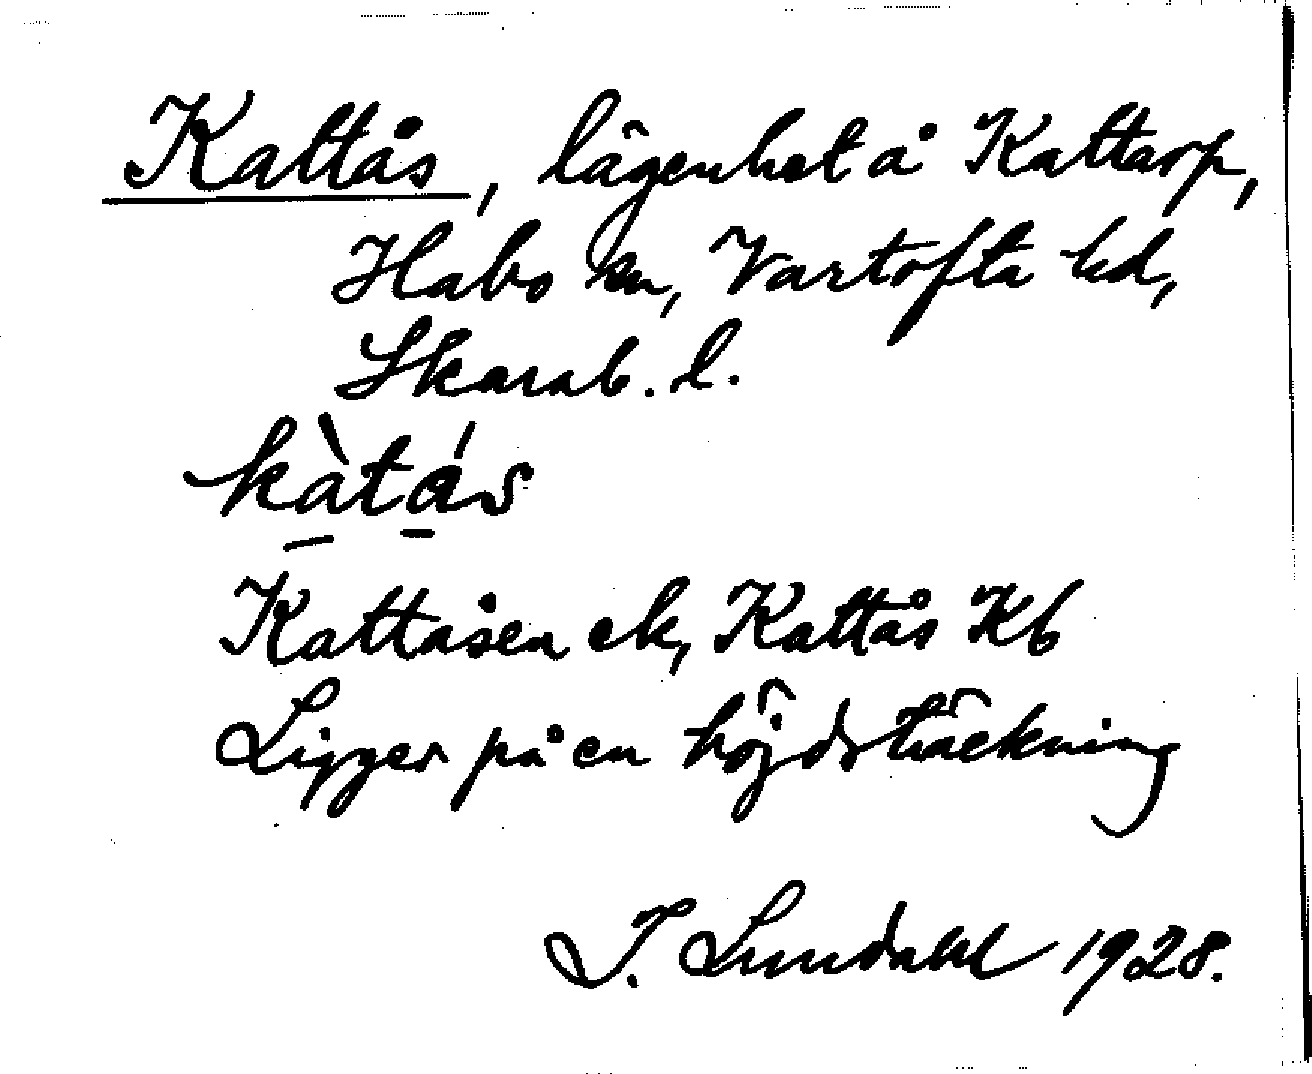 Kattås, lägenhet å Kattarp,
Habo sn, Vartofta hd,
Skarab. l.
kàtás
Kattåsen ek, Kattås Kb
Ligger på en höjdsträckning
I. Lundahl 1928.